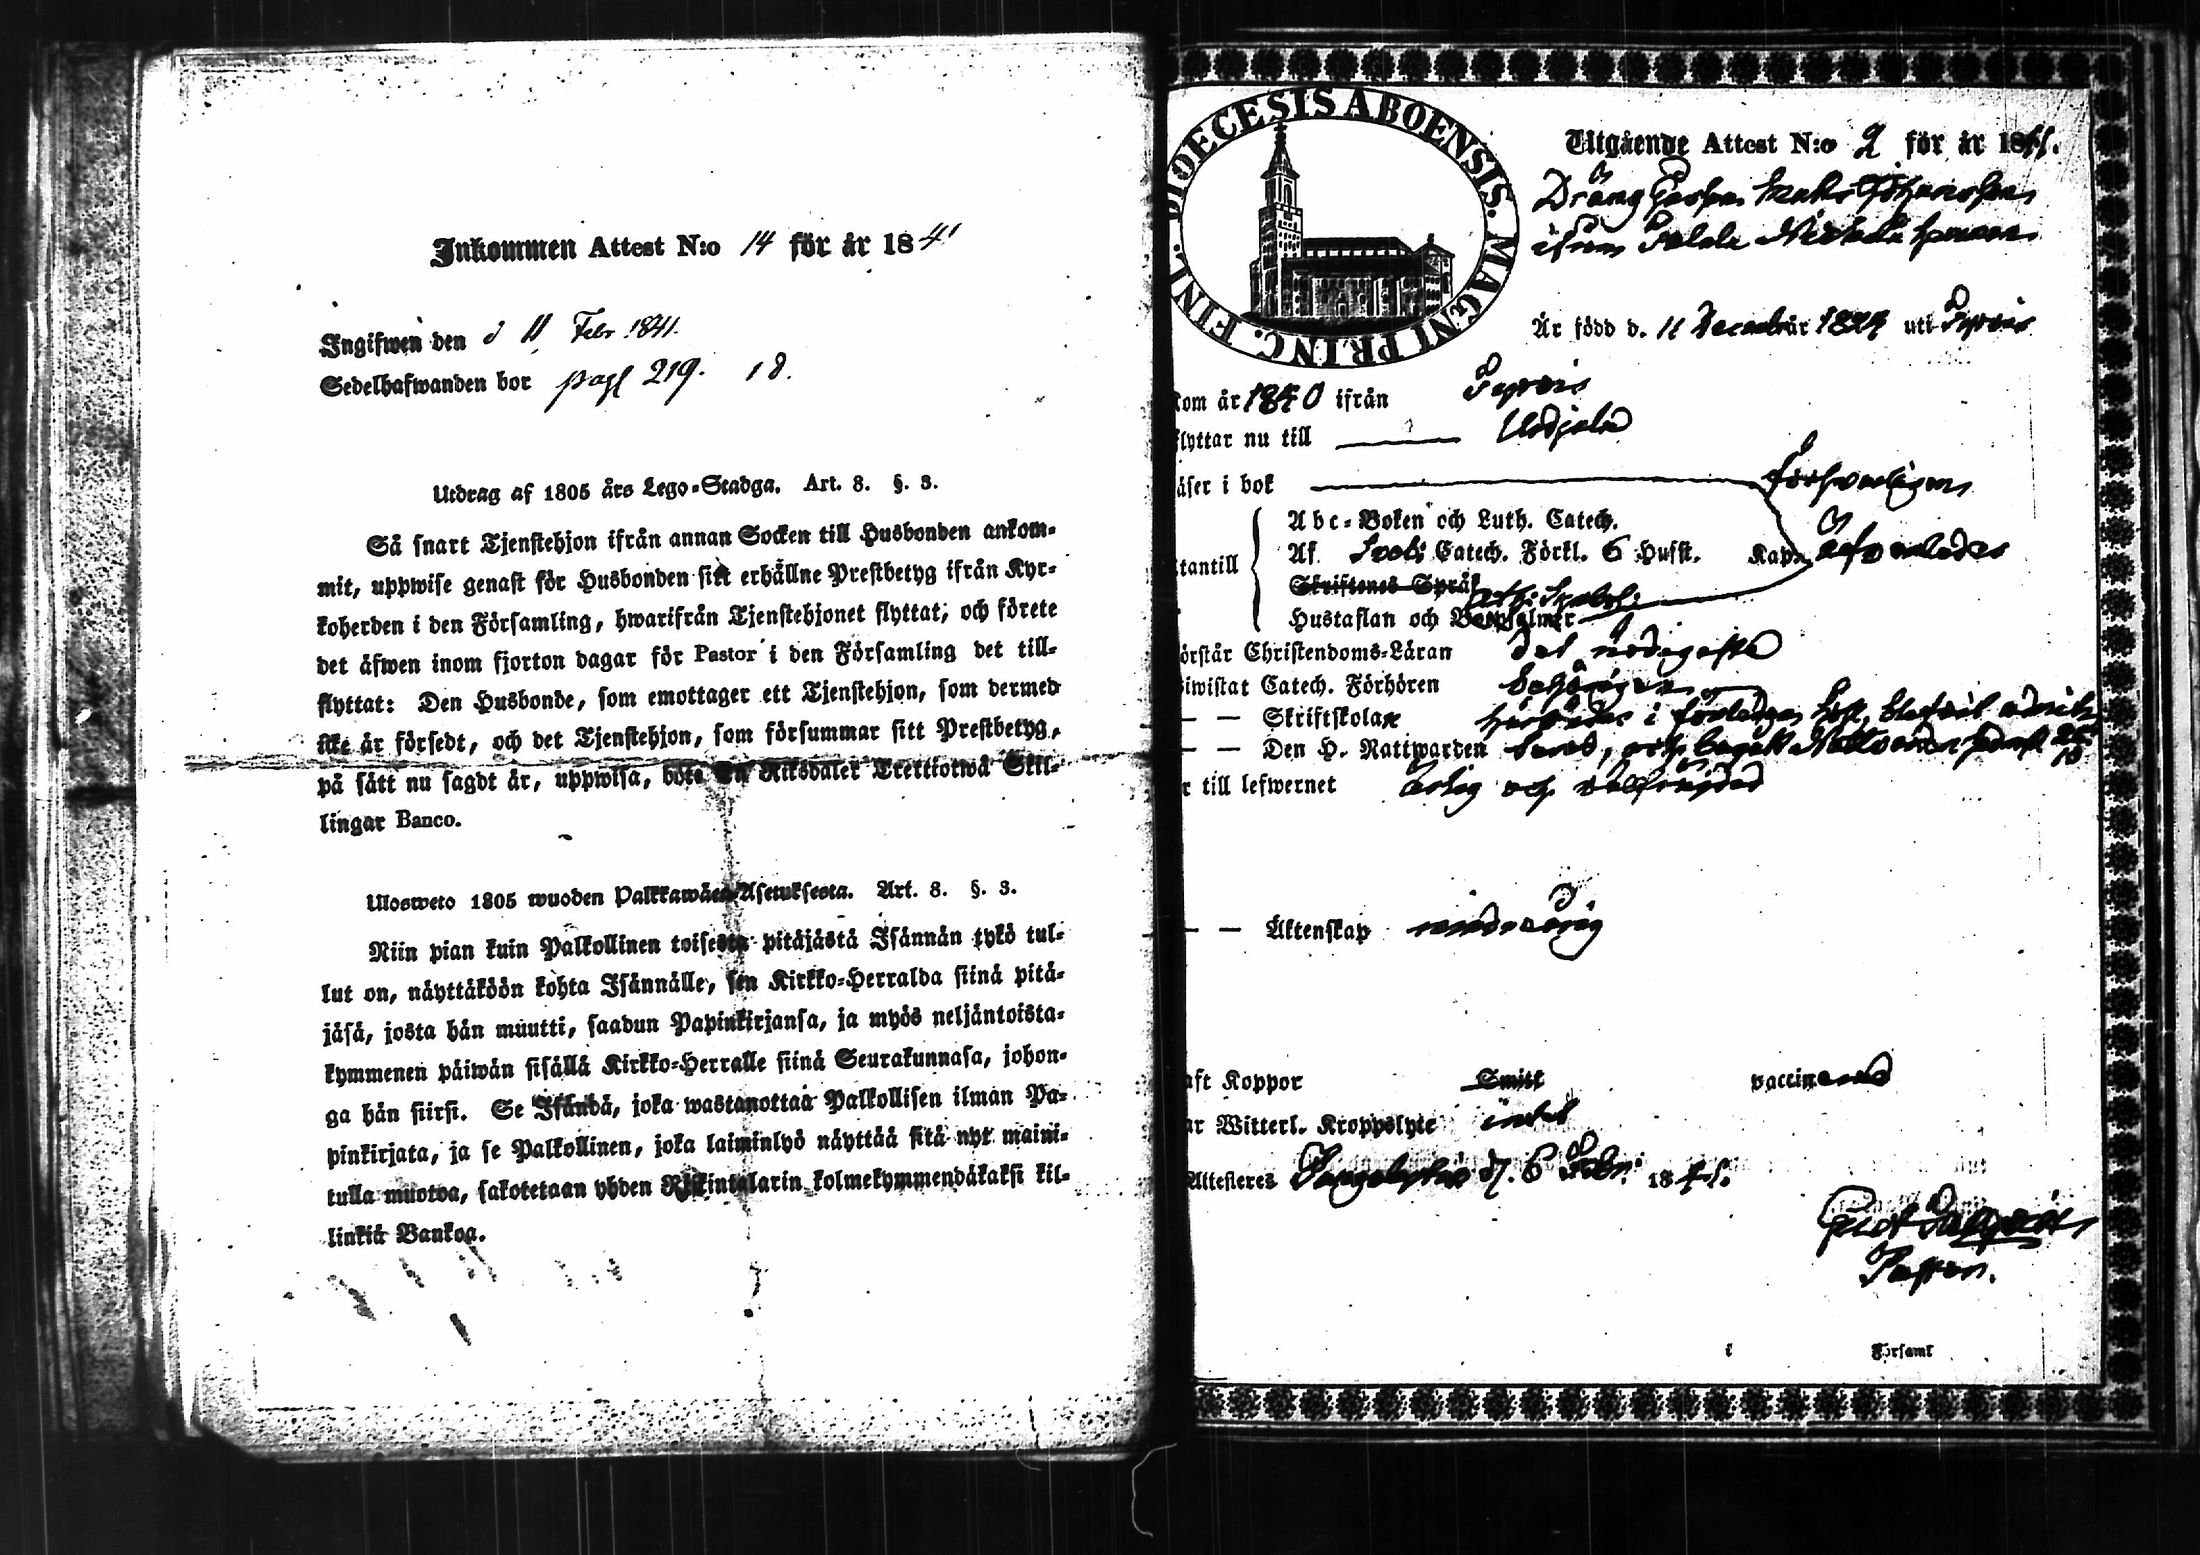 Inkommen Attest N:o 14 för år 1841
Ingifwen den d 11 Febr 1841.
Sedelhafwanden bor pagl 219. 18.
Utdrag af 1805 års Lego-Stadga. Art. 8. §. 3.
Så snart Tjenstehjon ifrån annan Socken till Husbonden ankom-
mit, uppwise genast för Husbonden sitt erhållne Prestbetyg ifrån Kyr-
koherden i den Församling, hwarifrån Tjenstehjonet flyttat, och förete
det äfwen inom fjorton dagar för Pastor i den Församling det till-
flyttat: Den Husbonde, som emottager ett Tjenstehjon, som dermed
icke är försedt, och det Tjenstehjon, som försummar sitt Prestbetyg,
på sätt nu sagdt är, uppwisa, böte En Riksdaler Trettiotwå Skil-
lingar Banco.
Ulosweto 1805 wuoden Palkkawäen Asetuksesta. Art. 8. §. 3.
Niin pian kuin Palkollinen toisesta pitäjästä Isännän tykö tul-
lut on, näyttäköön kohta Isännälle, sen Kirkko-Herralda siinä pitä-
jäsä, josta hän muutti, saadun Papinkirjansa, ja myös neljäntoista-
kymmenen päiwän sisällä Kirkko-Herralle siinä Seurakunnasa, johon-
ga hän siirsi. Se Isändä, joka wastanottaa Palkollisen ilman Pa-
pinkirjata, ja se Palkollinen, joka laiminlyö näyttää sitä nyt maini-
tulla muotoa, sakotetaan yhden Riikintalarin kolmekymmendäkaksi kil-
linkiä Bankoa.
DIOECESIS ABOENSIS. MAGNI PRINC. FINL.
Utgående Attest N:o 2 för år 1841.
Dräng Johansson
ifrån
Är född d. 11 December 1824 uti
kom år 1840 ifrån
flyttar nu till
läser i bok försvarligen
Abc-Boken och Luth. Catech.
Af Catech. Förkl. 6 Hufst. Kap.
utantill
Skriftenes Språk
Hustaflan och Botpsalmer
förstår Christendoms-Läran det nödigaste
biwistat Catech. Förhören behörigen
— — Skriftskolan
— — Den H. Nattwarden och begått Nattvarden
är till lefwernet ärlig och välfrejdad
— — Äktenskap minderårig
haft Koppor Smitt vaccinerad
har Witterl. Kroppslyte intet
Attesteres d. 6 Febr: 1841.
Pastor.
i Församl